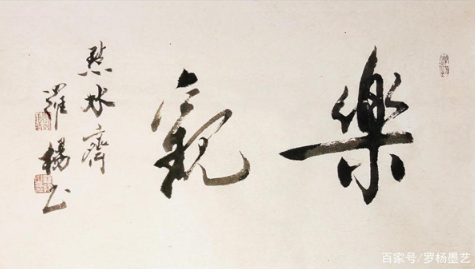 樂觀
水齋
羅楊书
百家号/罗杨墨艺